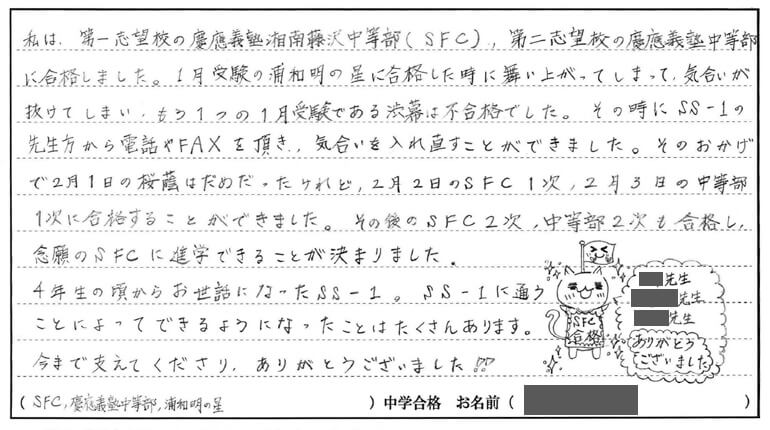 私は、第一志望校の慶應義塾湘南藤沢中等部(SFC)、第二志望校の慶應義塾中等部
に合格しました。1月受験の浦和明の星に合格した時に舞い上がってしまって、気合いが
抜けてしまい、もう1つの1月受験である渋幕は不合格でした。その時にSS-1の
先生方から電話やFAXを頂き、気合いを入れ直すことができました。そのおかげ
で2月1日の桜蔭はだめだったけれど、2月2日のSFC1次、2月3日の中等部
1次に合格することができました。その後のSFC2次、中等部2次も合格し、
念願のSFCに進学できることが決まりました。
4年生の頃からお世話になったSS-1。SS-1に通う
ことによってできるようになったことはたくさんあります。
今まで支えてくださり、ありがとうございました!!
SFC
合格
先生
先生
先生
ありがとう
ございました
(SFC,慶應義塾中等部,浦和明の星)中学合格 お名前()